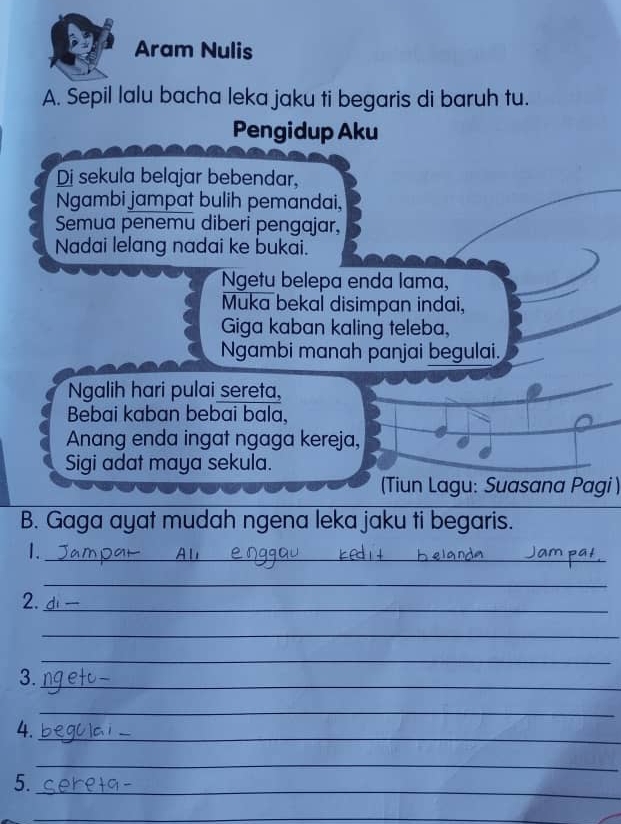 Aram Nulis
A. Sepil lalu bacha leka jaku ti begaris di baruh tu.
Pengidup Aku
Di sekula belajar bebendar,
Ngambi jampat bulih pemandai,
Semua penemu diberi pengajar,
Nadai lelang nadai ke bukai.
Ngetu belepa enda lama,
Muka bekal disimpan indai,
Giga kaban kaling teleba,
Ngambi manah panjai begulai.
Ngalih hari pulai sereta,
Bebai kaban bebai bala,
Anang enda ingat ngaga kereja,
Sigi adat maya sekula.
(Tiun Lagu: Suasana Pagi)
B. Gaga ayat mudah ngena leka jaku ti begaris.
1. Jampat Ali enggau kedit belanda jampat.
2. di -
3. ngetu -
4. begulai -
5. sereta -